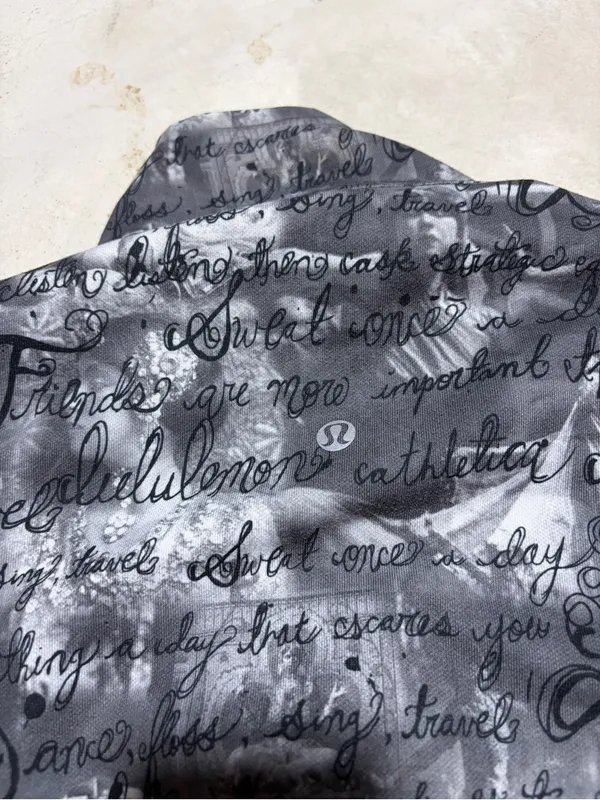 that escares
floss, sing, travel
sing, travel
listen, listen, then cask strategic
Sweat once a d
Friends are more important
lululemon cathletica
sing, travel Sweat once a day
thing a day that escares you
ance, floss, sing, travel